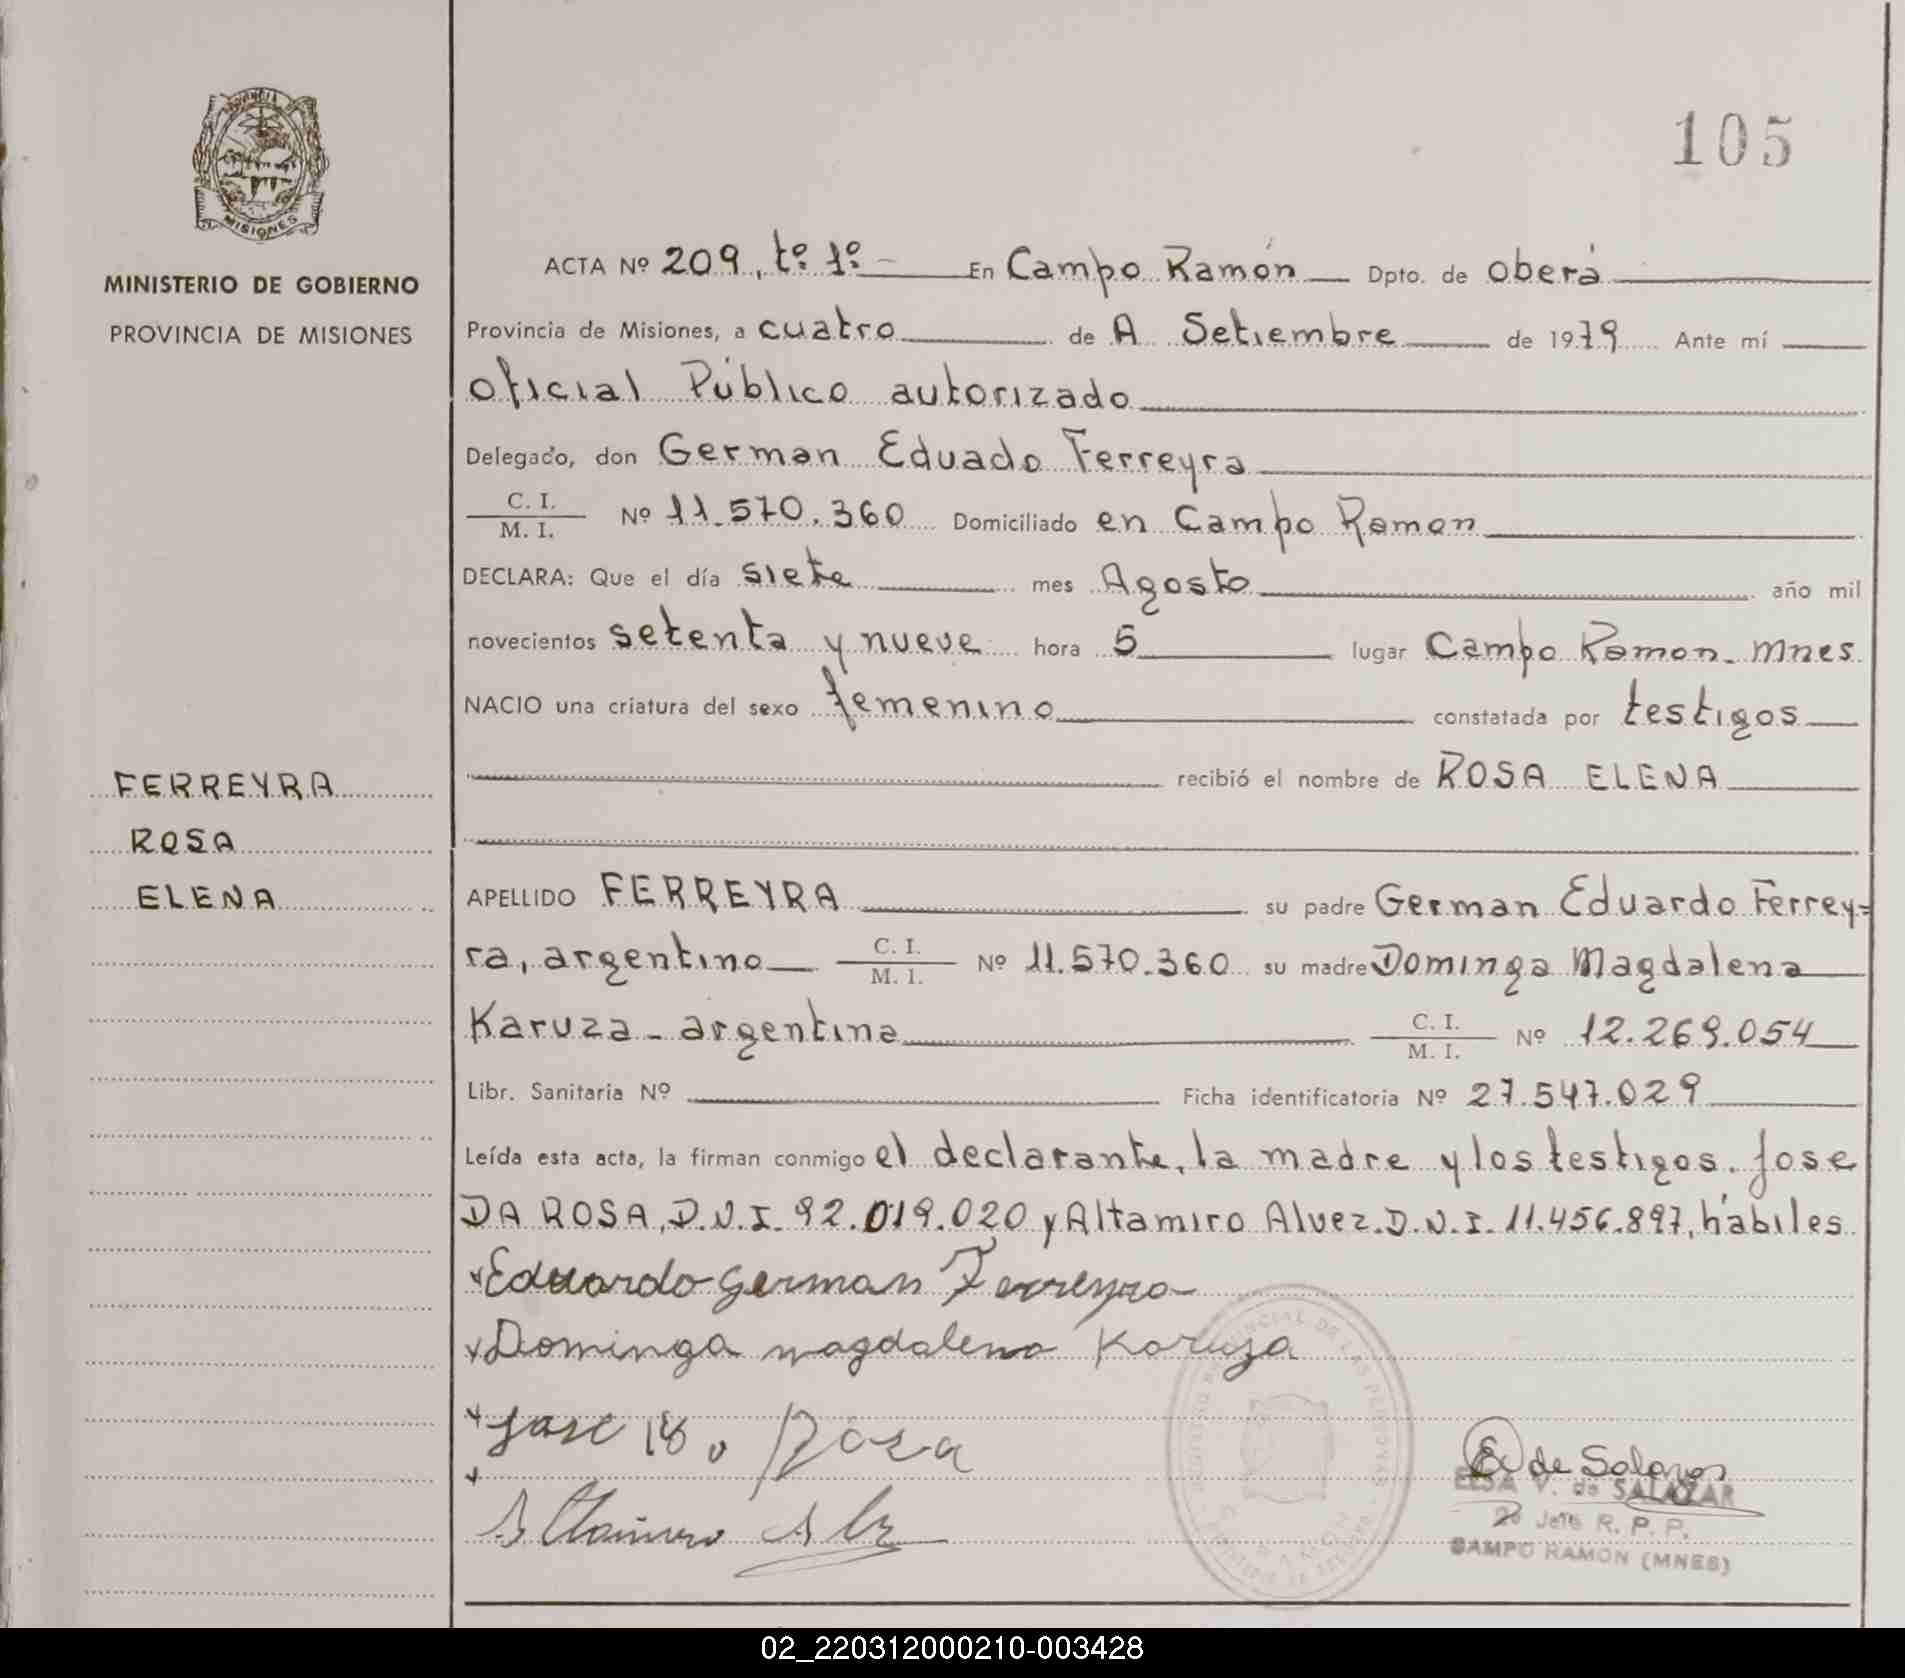 105
PROVINCIA DE
MISIONES
MINISTERIO DE GOBIERNO
PROVINCIA DE MISIONES
FERREYRA
ROSA
ELENA
ACTA Nº 209, tº 1º - En Campo Ramón Dpto. de oberá
Provincia de Misiones, a cuatro de A Setiembre de 1979 Ante mí
oficial Público autorizado
Delegado, don German Eduado Ferreyra
C. I.
M. I. Nº 11.570.360 Domiciliado en Campo Ramon
DECLARA: Que el día siete mes Agosto año mil
novecientos setenta y nueve hora 5 lugar Campo Ramon. Mnes
NACIO una criatura del sexo femenino constatada por testigos
recibió el nombre de ROSA ELENA
APELLIDO FERREYRA su padre German Eduardo Ferrey=
ra, argentino C. I. M. I. Nº 11.570.360 su madre Dominga Magdalena
Karuza - argentina C. I. M. I. Nº 12.269.054
Libr. Sanitaria Nº Ficha identificatoria Nº 27.547.029
Leída esta acta, la firman conmigo el declarante, la madre y los testigos. Jose
DA ROSA, D.N.I. 92.019.020 y Altamiro Alvez. D.N.I. 11.456.897, hábiles
Eduardo German Ferreyra
Dominga magdalena Karuza
Jose Rosa
Altamiro
de
ELSA V. de SALAZAR
Jefe R. P. P.
CAMPO RAMON (MNES)
02_220312000210-003428